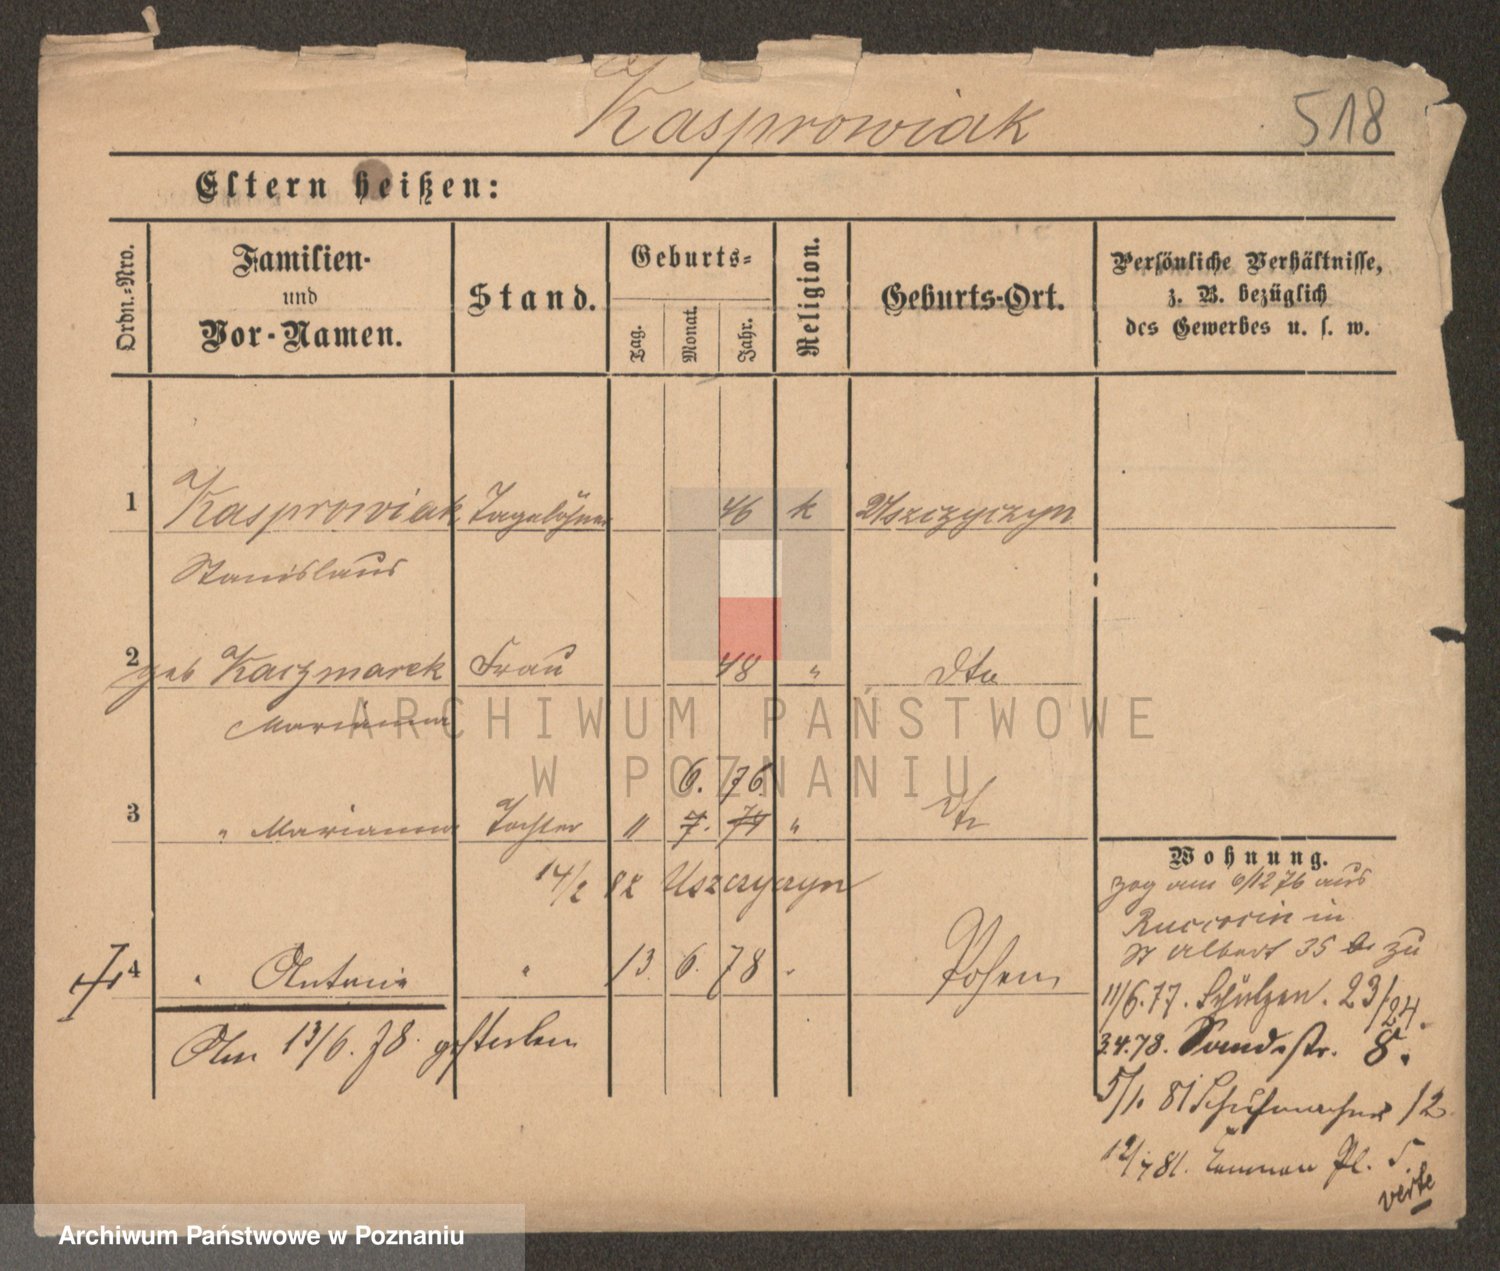 Kasprowiak 518
Eltern heißen:
Ordn.-Nro.
Familien-
und
Vor-Namen.
Stand.
Geburts-
Tag.
Monat.
Jahr.
Religion.
Geburts-Ort.
Persönliche Verhältnisse,
z. B. bezüglich
des Gewerbes u. s. w.
1 Kasprowiak Tagelöhner 46 k Uszczyczyn
Stanislaus
2 geb Kaczmarek Frau 48 " Dto
Marianna
6. 76.
3 " Marianna Tochter 11 7. 77 " Dto
14/2 82 Uszczyczyn
4 " Antonie " 13 6. 78 " Posen
Am 13/6. 78. gestorben
Wohnung.
zog am 6/12 76 aus
in
St Albert 35 zu
11/6.77. Schützen. 23/24.
3.4.78. Sandstr. 8.
5/1. 81 Schuhmacher 12
12/7 81. Pl. 5.
verte
ARCHIWUM PAŃSTWOWE
W POZNANIU
Archiwum Państwowe w Poznaniu